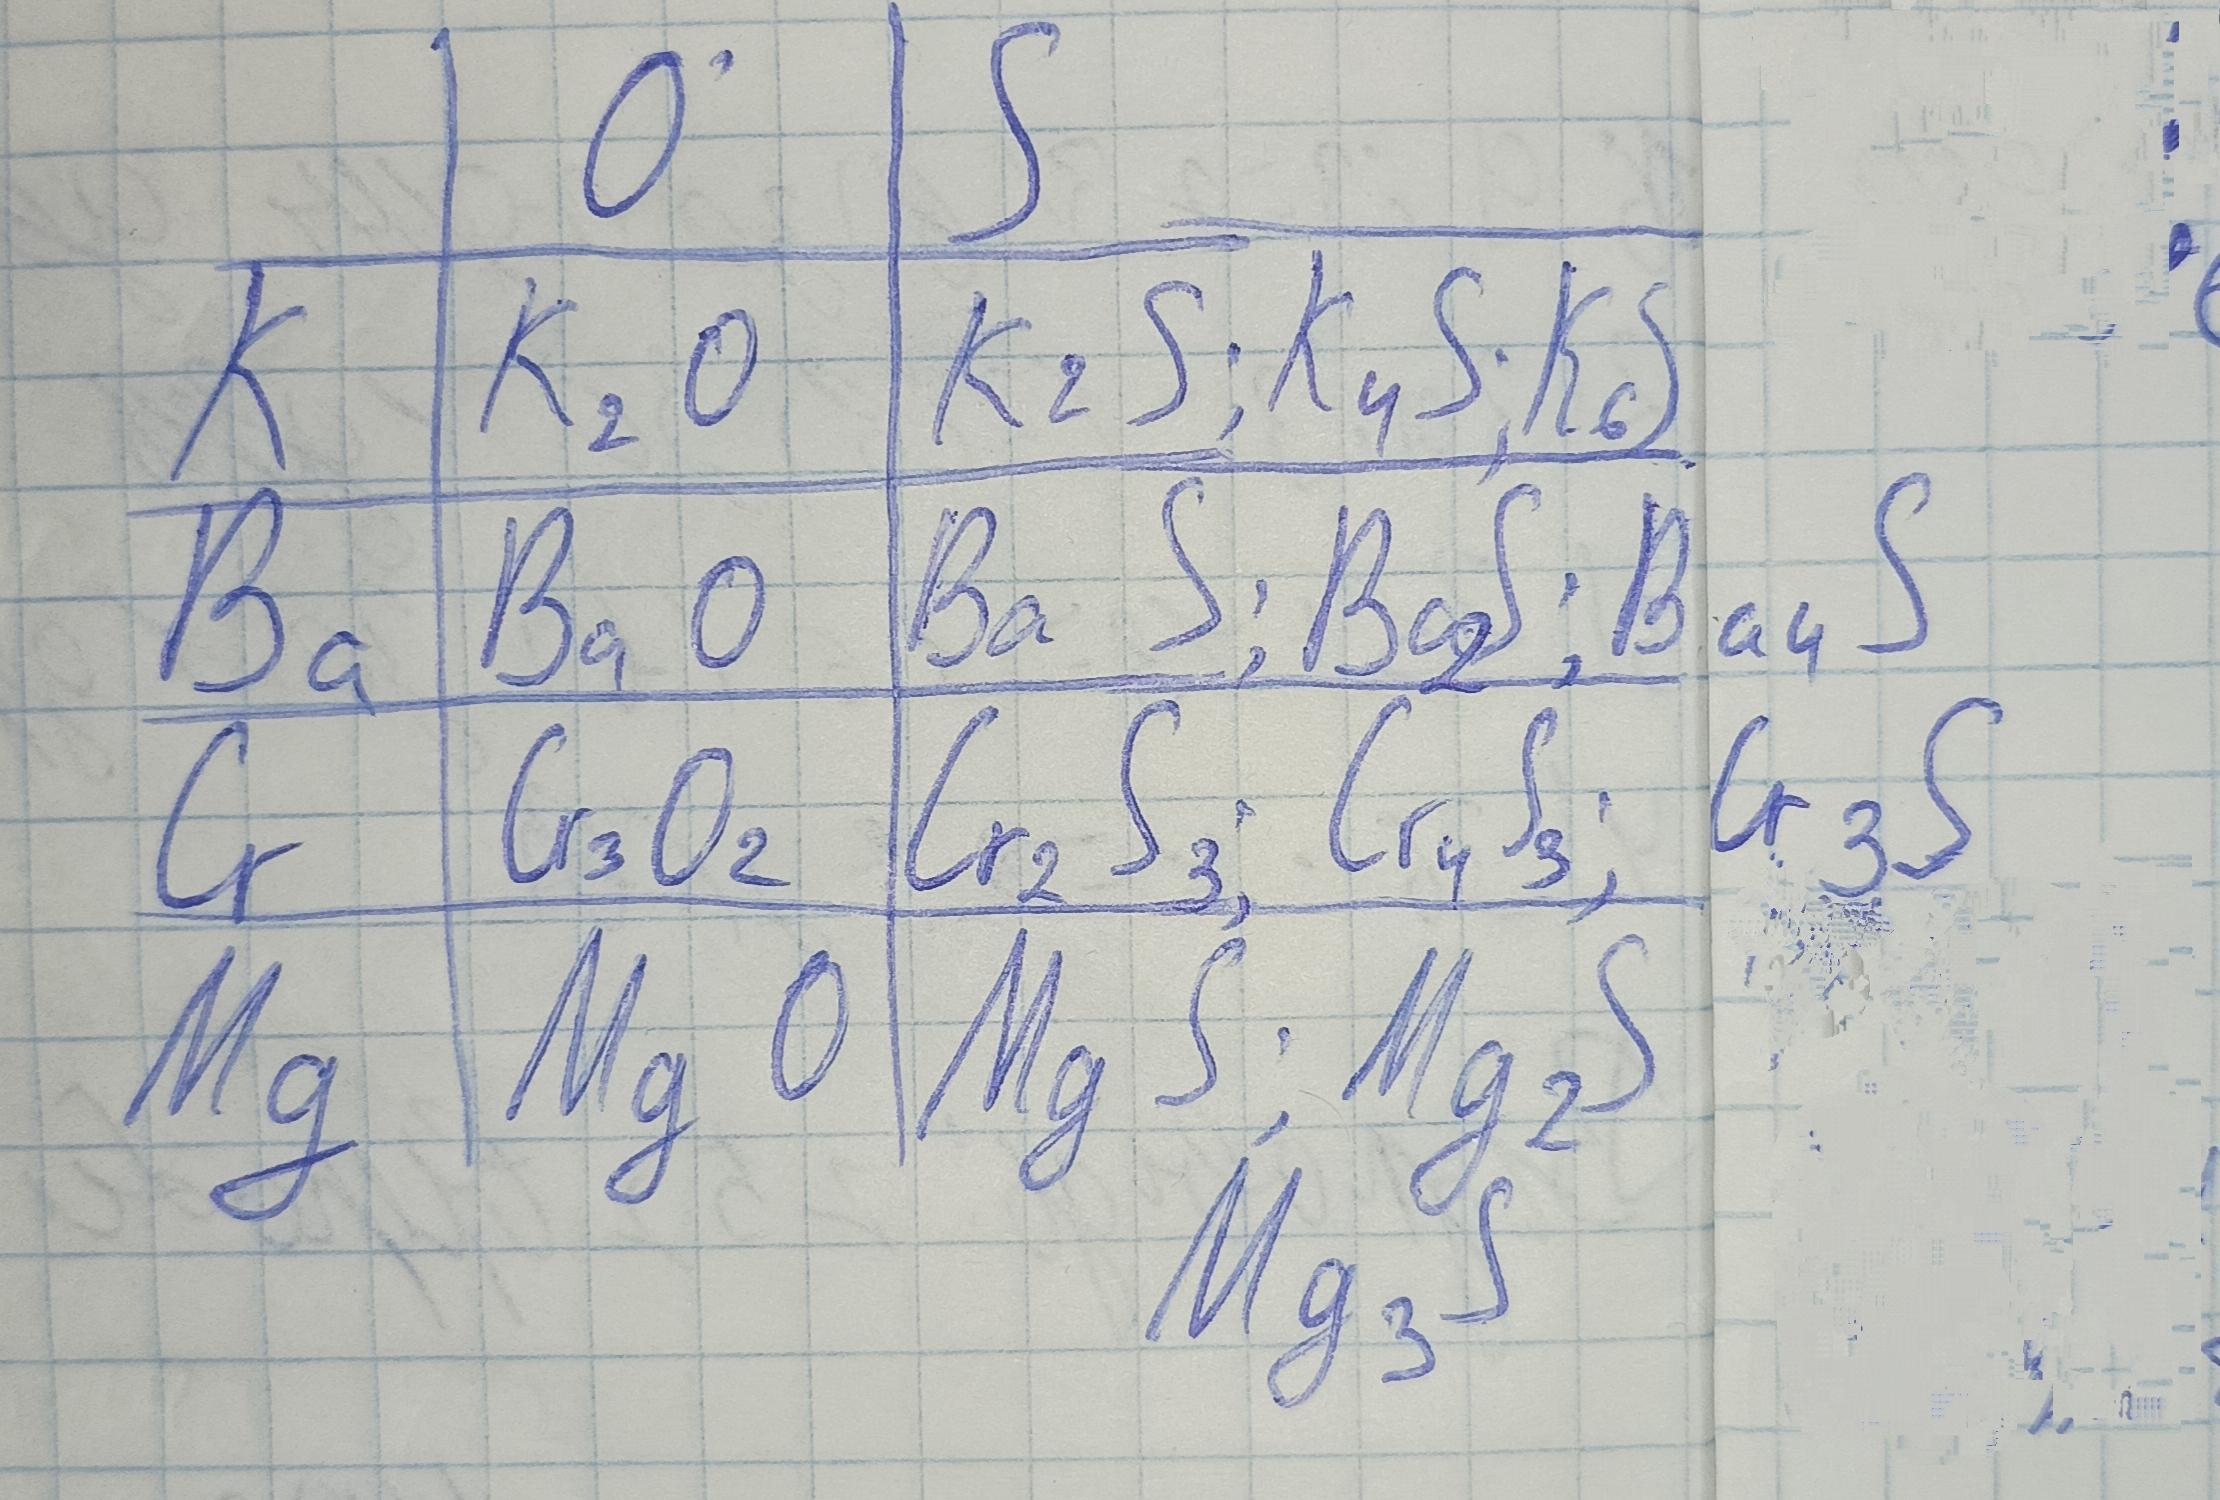 O S
K K₂O K₂S; K₄S; K₆S
Ba BaO BaS; Ba₂S; Ba₄S
Cr Cr₃O₂ Cr₂S₃; Cr₄S₃; Cr₃S
Mg MgO MgS; Mg₂S
Mg₃S